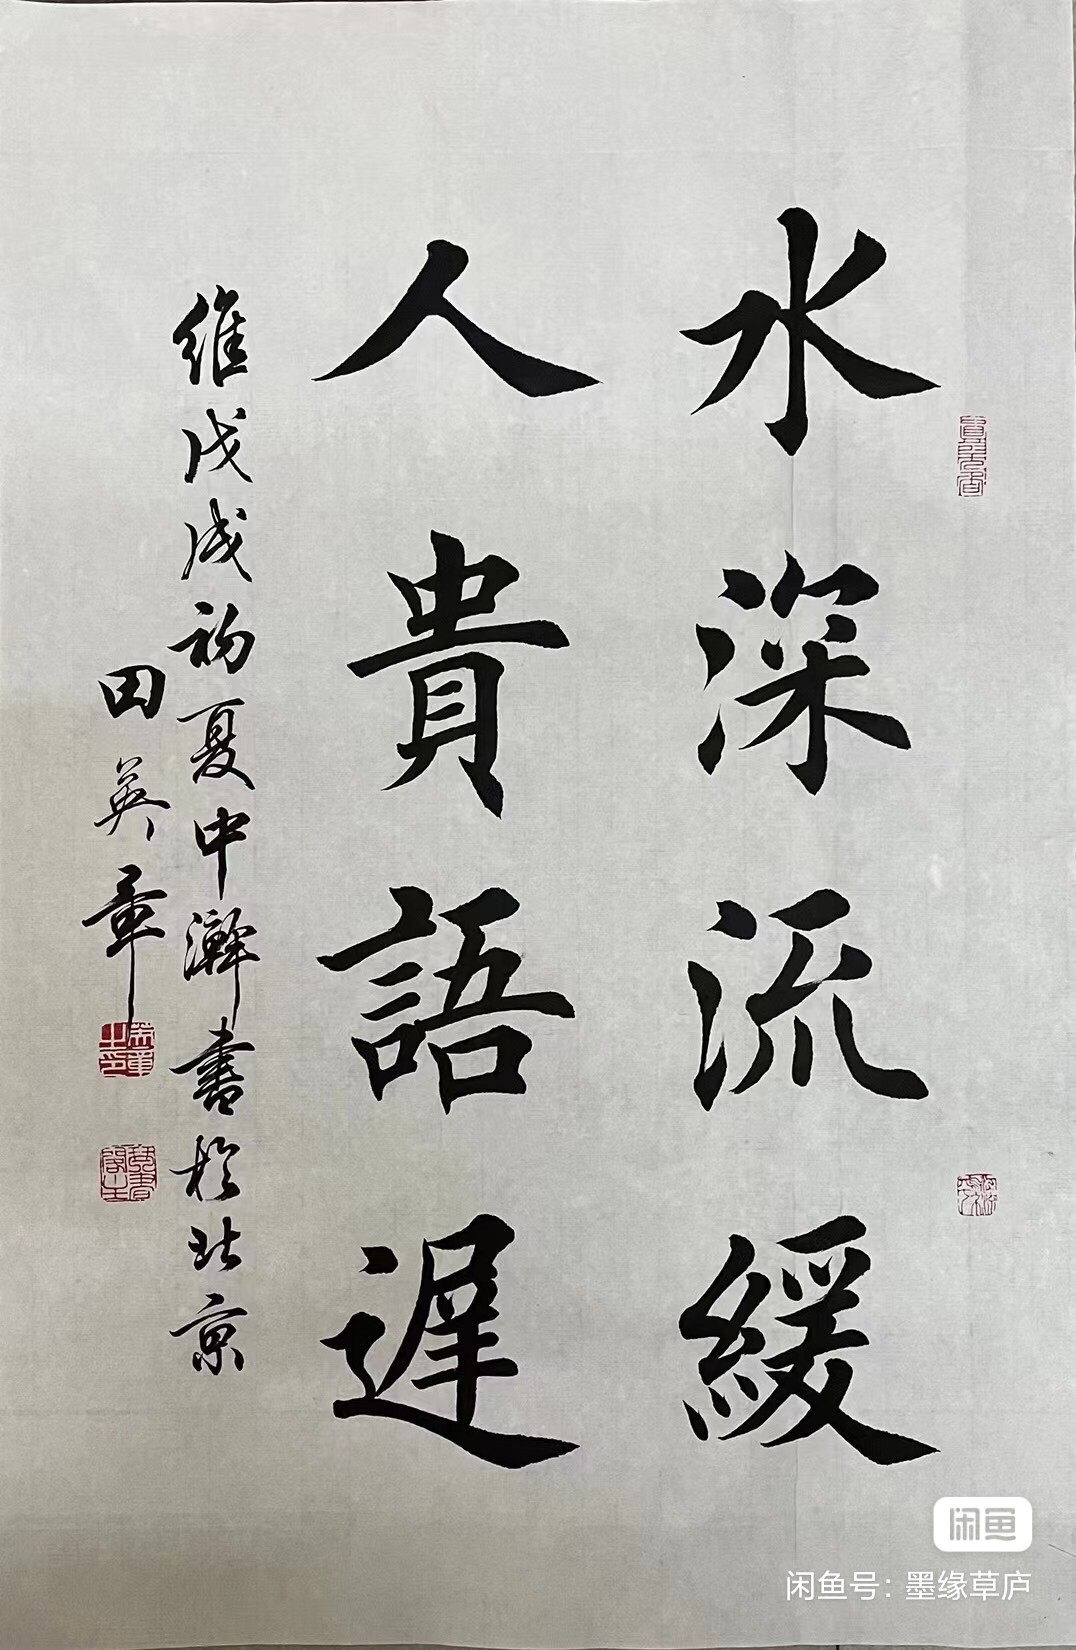 水深流緩
人貴語遲
維戊戌初夏中澣書於北京
田英章
英章之印
闲鱼
闲鱼号：墨缘草庐